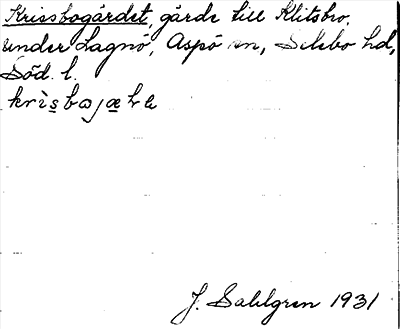 Krissbogärdet, gärde till Klitsbo,
under Lagnö, Aspö sn, Selebo hd,
Söd. l.
J. Sahlgren 1931